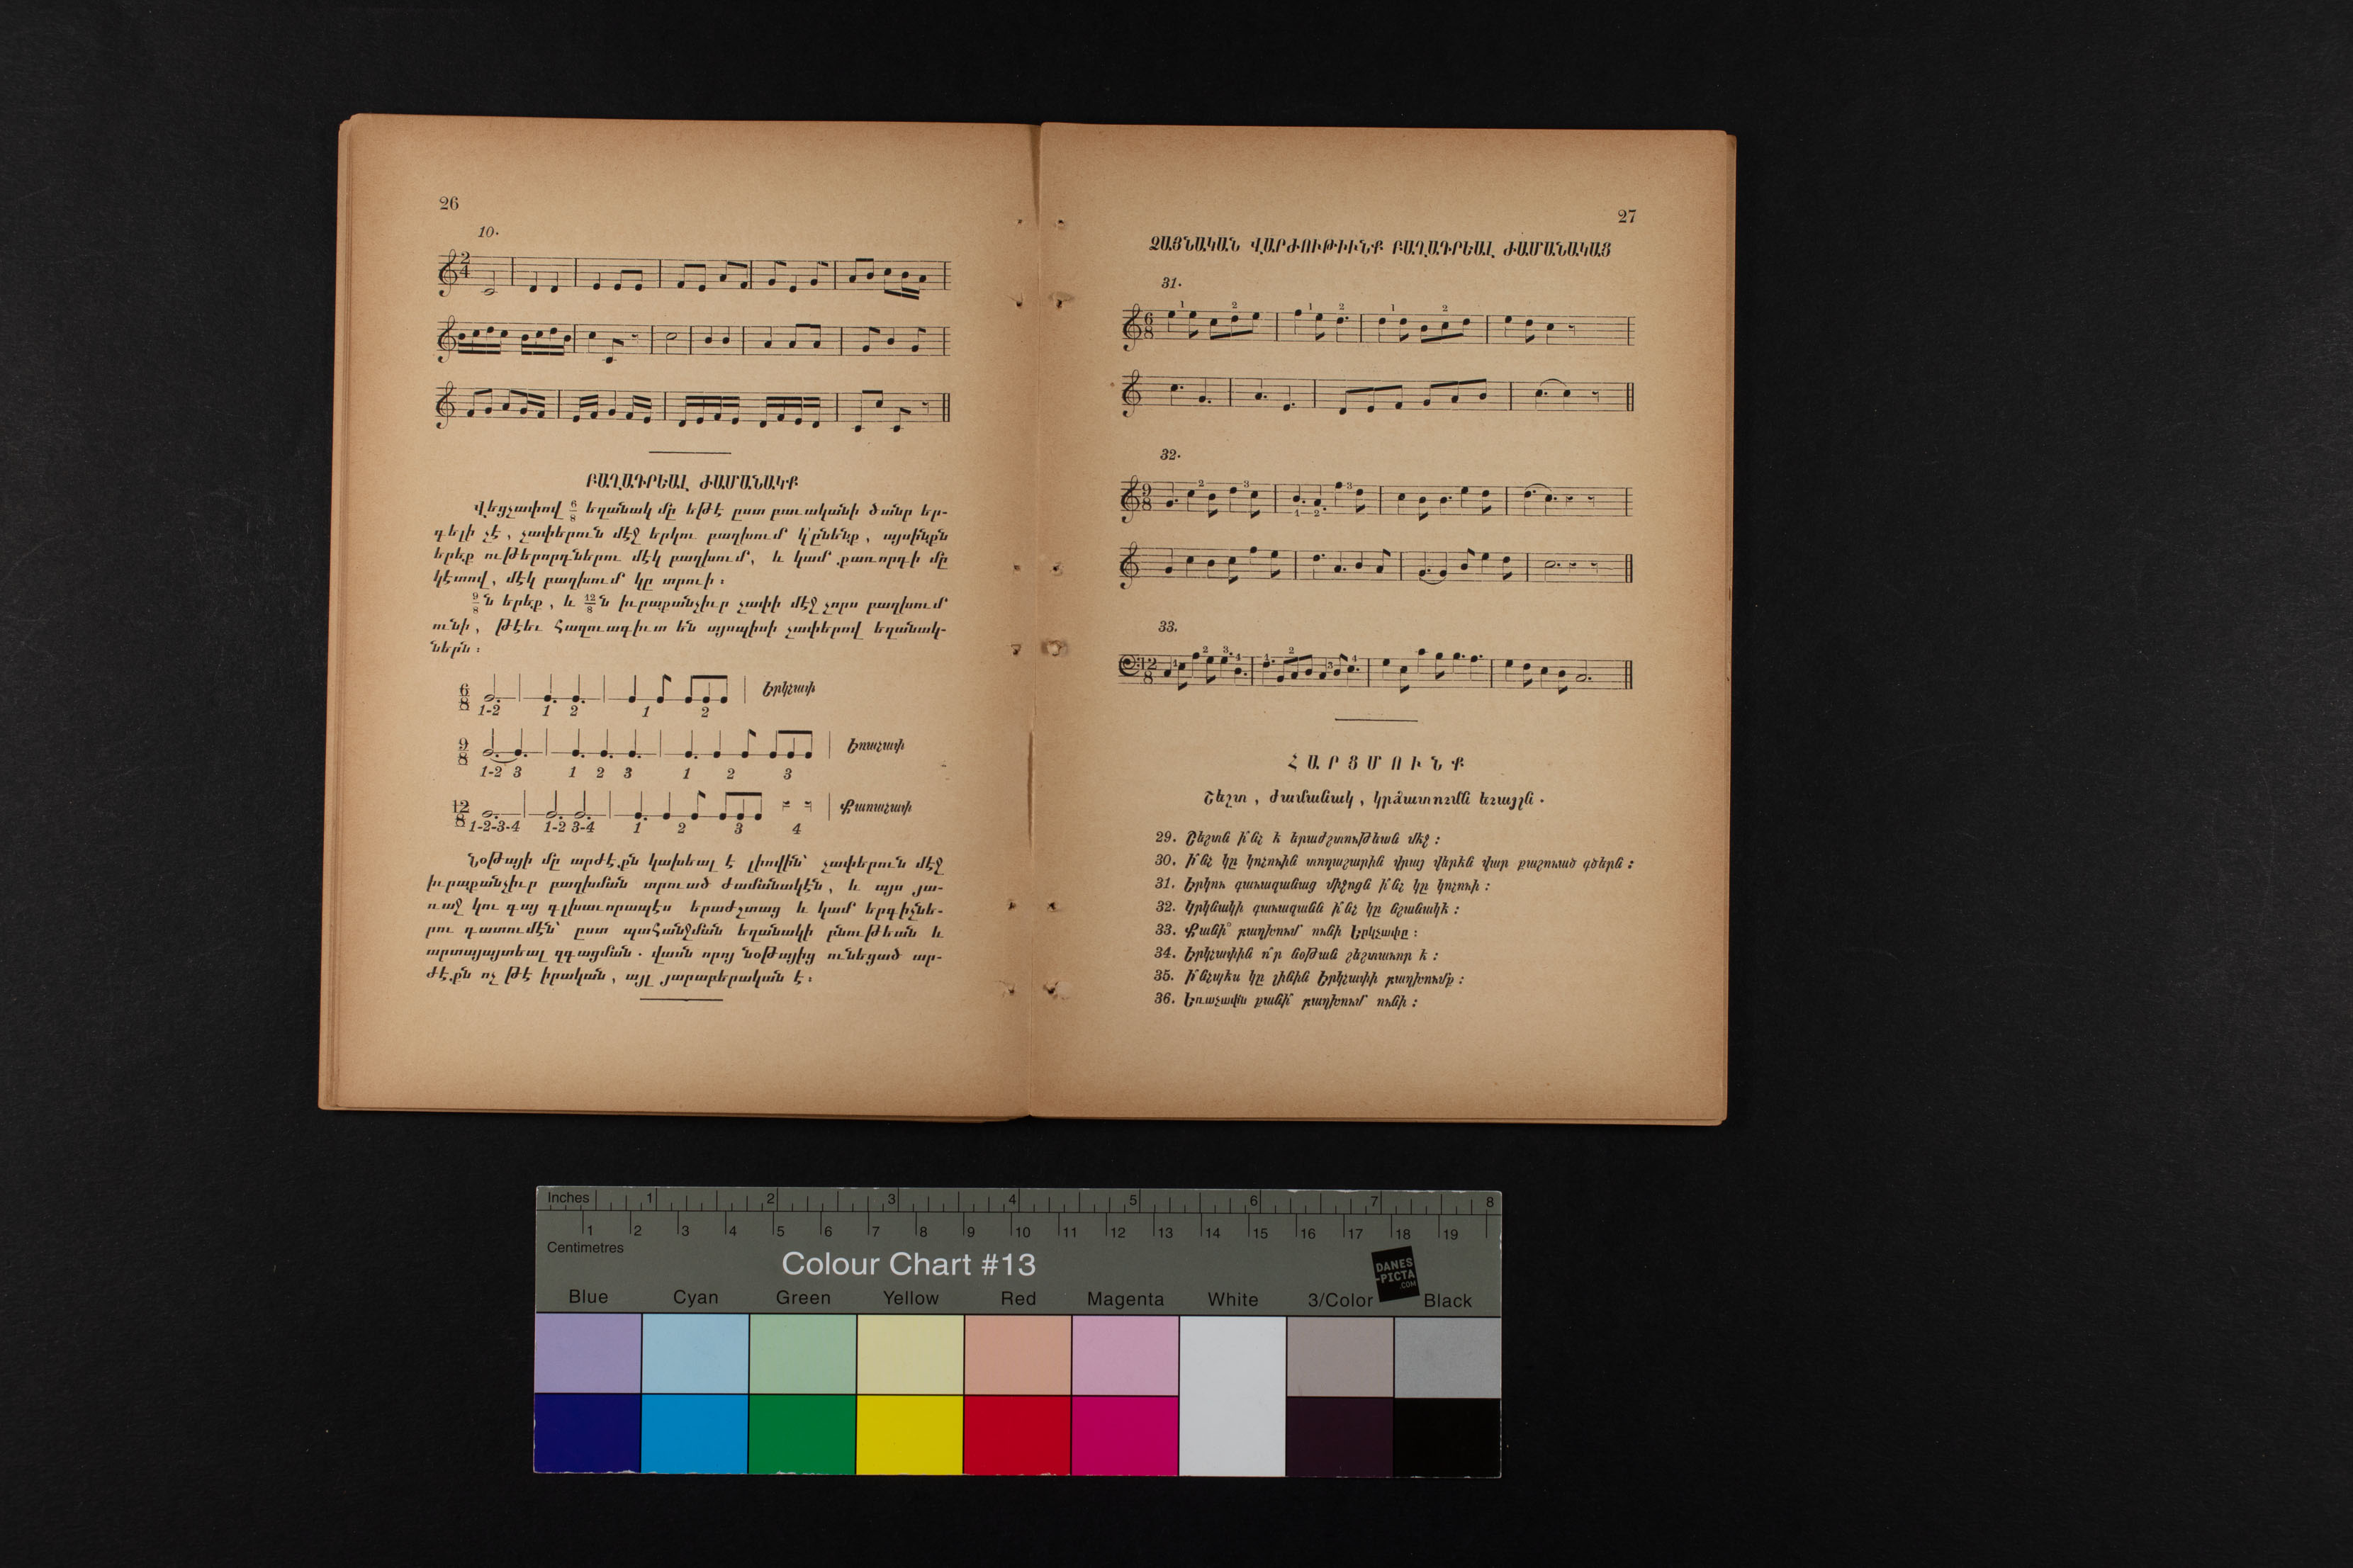 26
10.
2
4
ԲԱՂԱԴՐԵԱԼ ԺԱՄԱՆԱԿՔ
Վեցչափով 6/8 եղանակ մը եթէ ըստ բաւականի ծանր եր-
գելի չէ, չափերուն մէջ երկու բաղխում կ՚ընենք, այսինքն
երեք ութերորդներու մէկ բաղխում, և կամ քառորդի մը
կէտով, մէկ բաղխում կը տրուի։
9/8 ն երեք, և 12/8 ն իւրաքանչիւր չափի մէջ չորս բաղխում
ունի, թէեւ հազուագիւտ են այսպիսի չափերով եղանակ-
ներն։
6
8
Երկչափ
1-2 1 2 1 2
9
8
Եռաչափ
1-2 3 1 2 3 1 2 3
12
8
Քառաչափ
1-2-3-4 1-2 3-4 1 2 3 4
Նօթայի մը արժէքն կախեալ է լիովին՝ չափերուն մէջ
իւրաքանչիւր բաղխման տրուած ժամանակէն, և այս յա-
ռաջ կու գայ գլխաւորապէս երաժշտաց և կամ երգիչնե-
րու դատումէն՝ ըստ պահանջման եղանակի բնութեան և
արտայայտեալ զգացման. վասն որոյ նօթայից ունեցած ար-
ժէքն ոչ թէ իրական, այլ յարաբերական է։
27
ՁԱՅՆԱԿԱՆ ՎԱՐԺՈՒԹԻՒՆՔ ԲԱՂԱԴՐԵԱԼ ԺԱՄԱՆԱԿԱՑ
31.
1 2 1 2 1 2
6
8
32.
2 3 3
9
8
1 2
33.
1 2 3 4 1 2 3 4
12
8
ՀԱՐՑՄՈՒՆՔ
Շեշտ, ժամանակ, կրճատումն եւայլն.
29. Շեշտն ի՞նչ է երաժշտութեան մէջ։
30. Ի՞նչ կը կոչուին տողաշարին վրայ վերէն վար քաշուած գծերն։
31. Երկու գաւազանաց միջոցն ի՞նչ կը կոչուի։
32. Կրկնակի գաւազանն ի՞նչ կը նշանակէ։
33. Քանի՞ բաղխում ունի Երկչափը։
34. Երկչափին ո՞ր նօթան շեշտաւոր է։
35. Ի՞նչպէս կը լինին Երկչափի բաղխումք։
36. Եռաչափն քանի՞ բաղխում ունի։
Inches 1 2 3 4 5 6 7 8
1 2 3 4 5 6 7 8 9 10 11 12 13 14 15 16 17 18 19
Centimetres
Colour Chart #13
DANES
-PICTA
.COM
Blue Cyan Green Yellow Red Magenta White 3/Color Black